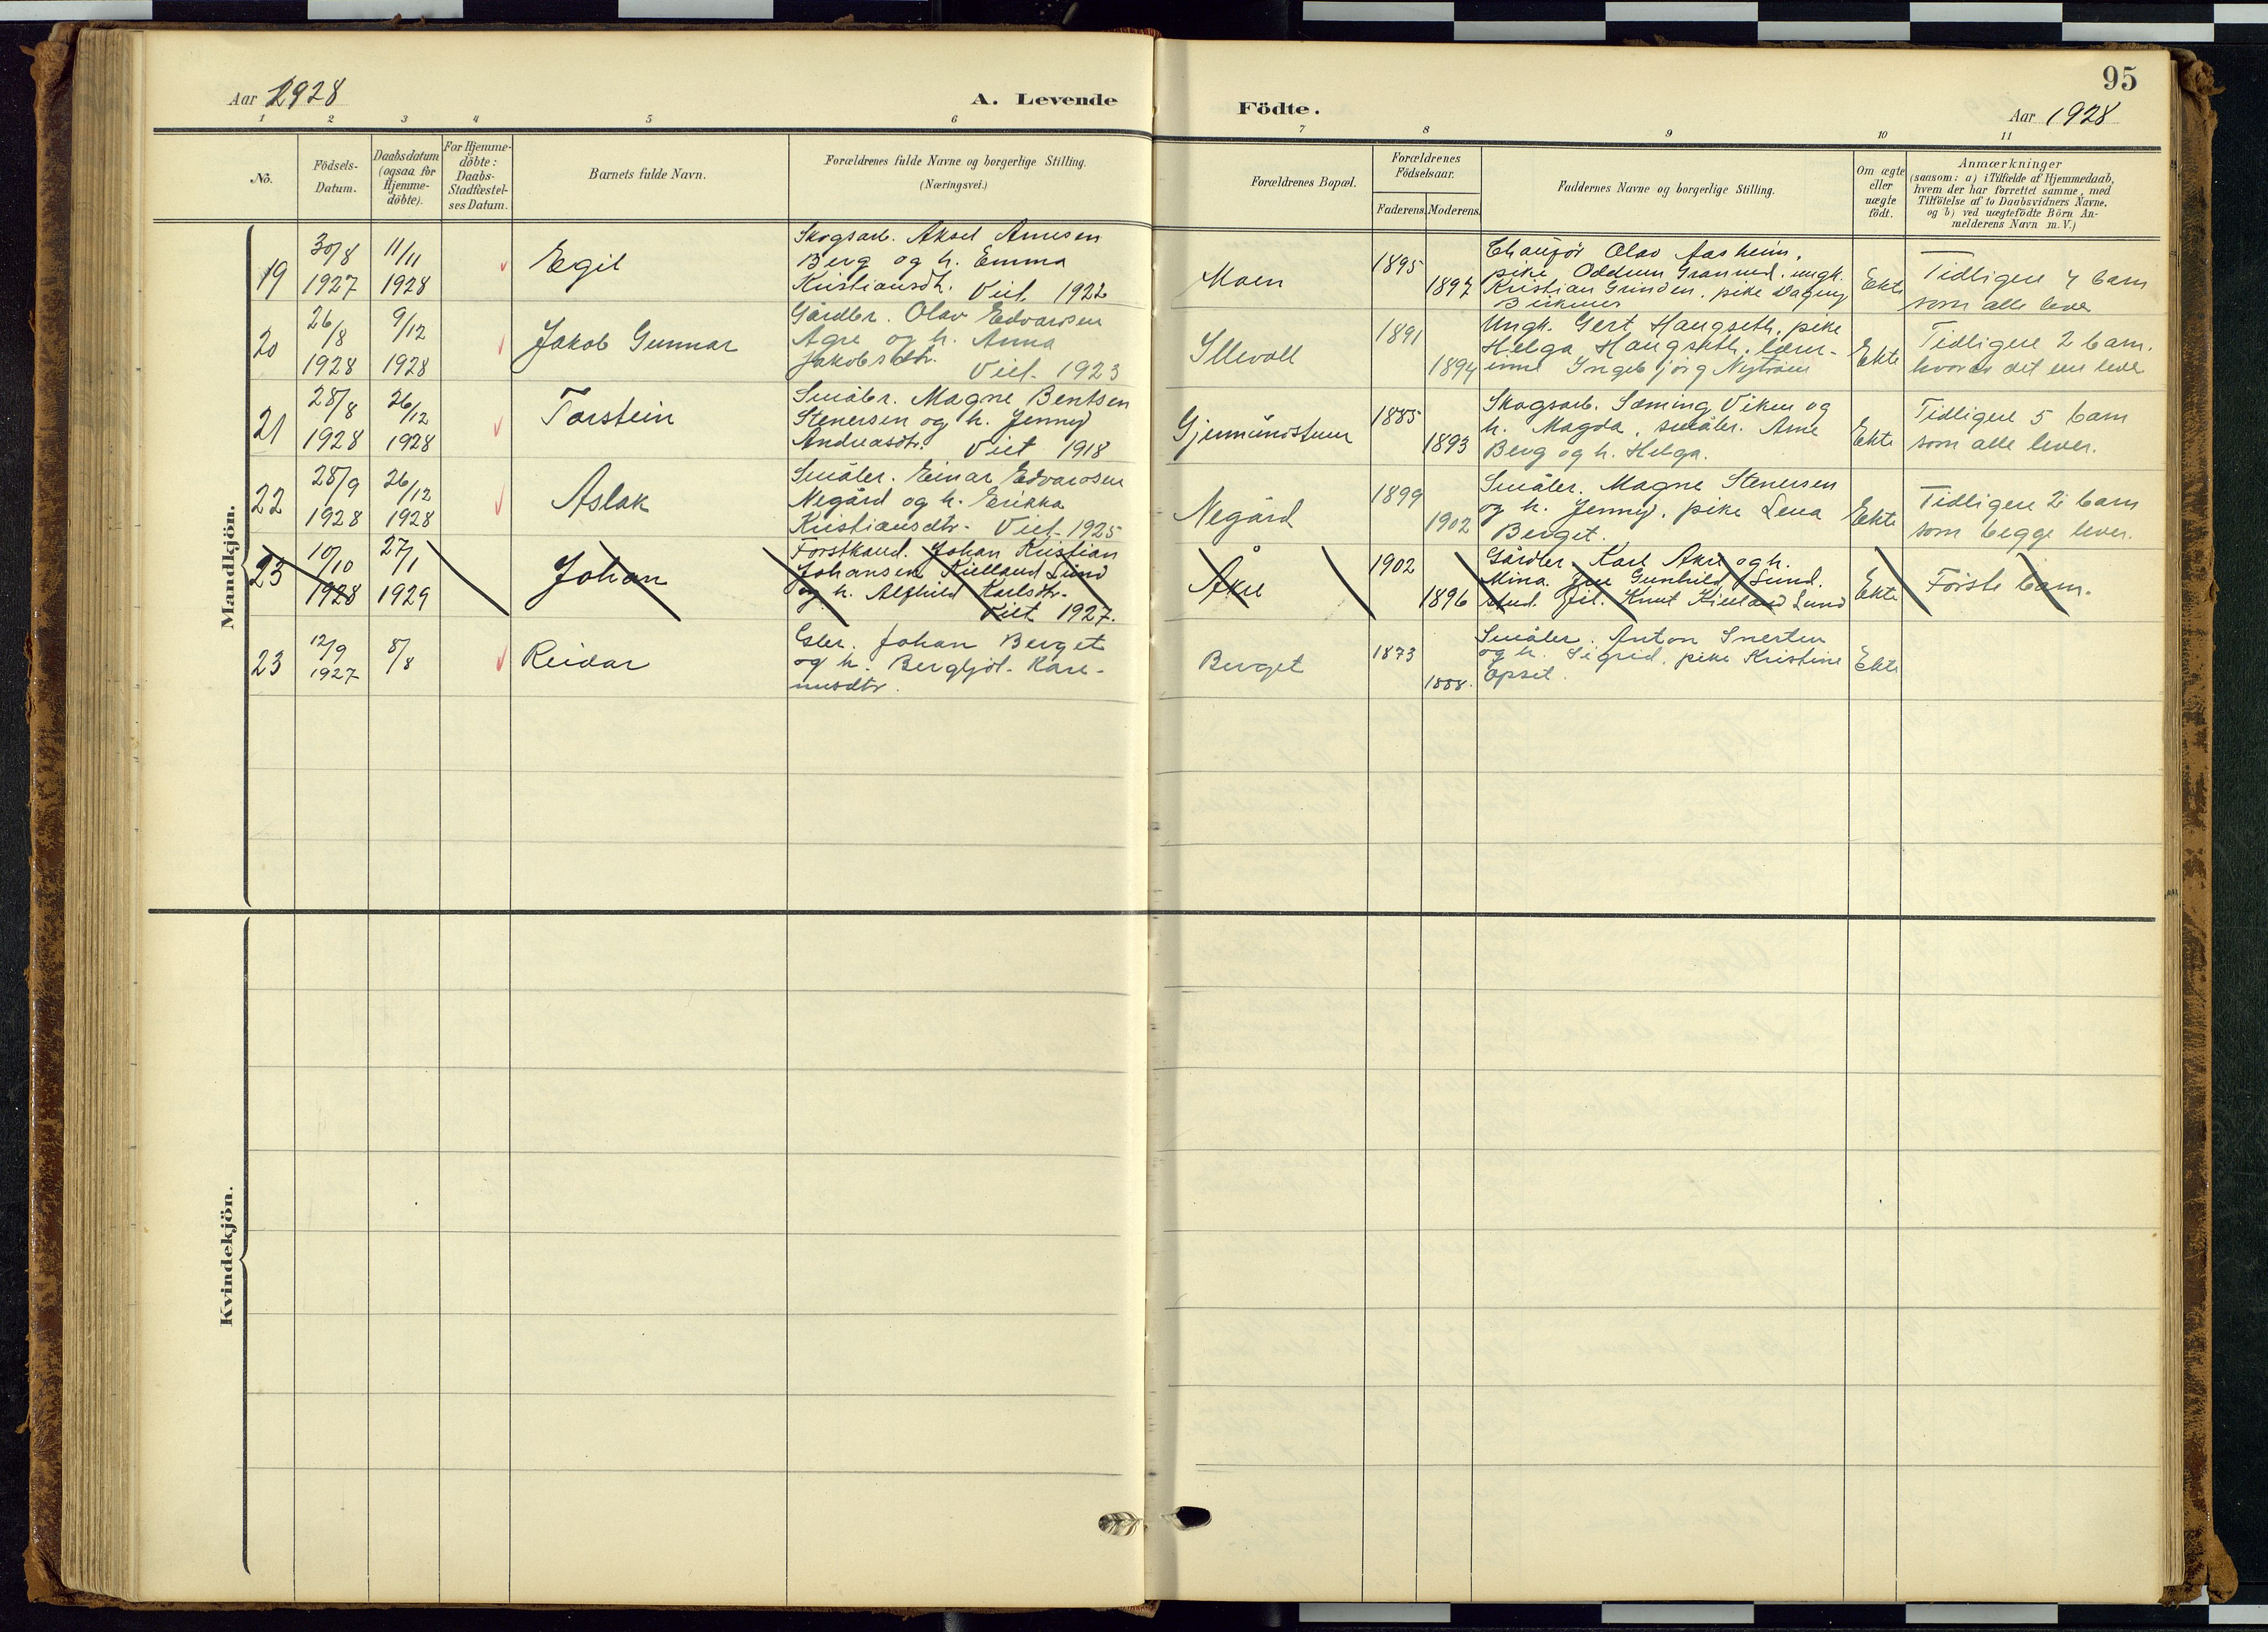 Aar 1928
A. Levende
Födte.
95
Aar 1928
1 2 3 4 5 6 7 8 9 10 11
No.
Födsels-
Datum.
Daabsdatum
(ogsaa for
Hjemme-
döbte).
For Hjemme-
döbte:
Daabs-
Stadfæstel-
ses Datum.
Barnets fulde Navn.
Forældrenes fulde Navne og borgerlige Stilling.
(Næringsvei.)
Forældrenes Bopæl.
Forældrenes
Födselsaar.
Faderens. Moderens.
Faddernes Navne og borgerlige Stilling.
Om ægte
eller
uægte
födt.
Anmærkninger
(saasom: a) i Tilfælde af Hjemmedaab,
hvem der har forrettet samme, med
Tilföielse af to Daabsvidners Navne.
og b) ved uægtefödte Börn An-
melderens Navn m. V.)
Mandkjön.
19
30/8
1927
11/11
1928
Egil
Skogsarb. Aksel Arnesen
Berg og h. Emma
Kristiansdtr. Viet 1922
Moen
1895
1897
Chaufför Olav Aasheim,
pike Oddrun Granrud, ungk.
Kristian Grinden, pike Dagny
Ekte
Tidligere 4 barn
som alle lever
20
26/8
1928
9/12
1928
Jakob Gunnar
Gårdbr. Olav Edvardsen
Agre og h. Anna
Jakobsdtr. Viet 1923
Illevoll
1891
1894
Ungk. Gert Haugseth, pike
Helga Haugseth, lærer-
inne Ingebjörg Nyström
Ekte
Tidligere 2 barn
hvorav det ene lever
21
28/8
1928
26/12
1928
Torstein
Småbr. Magne Bentsen
Stenersen og h. Jenny
Andreasdtr. Viet 1918
Gjermundstuen
1885
1893
Skogsarb. Sæming Viken og
h. Magda, småbr. Arne
Berg og h. Helga.
Ekte
Tidligere 5 barn
som alle lever.
22
28/9
1928
26/12
1928
Aslak
Småbr. Einar Edvardsen
Negård og h. Erikka
Kristiansdtr. Viet 1925
Negård
1899
1902
Småbr. Magne Stenersen
og h. Jenny, pike Lena
Berget.
Ekte
Tidligere 2 barn
som begge lever.
23
10/10
1928
27/1
1929
Johan
Forstkand. Johan Kristian
Johansen Kielland Lund
og h. Alfhild Karlsdtr.
Viet 1927.
Åkre
1902
1896
Gårdbr. Karl Akre og h.
Mina. Fru Gunhild Lund.
stud. fil. Knut Kielland Lund
Ekte
Förste barn.
23
12/9
1927
8/8
Reidar
Gbr. Johan Berget
og h. Bergljot Kare-
nusdtr.
Berget
1873
1888.
Småbr. Anton Snerten
og h. Sigrid, pike Kristine
Opset.
Ekte
Kvindekjön.